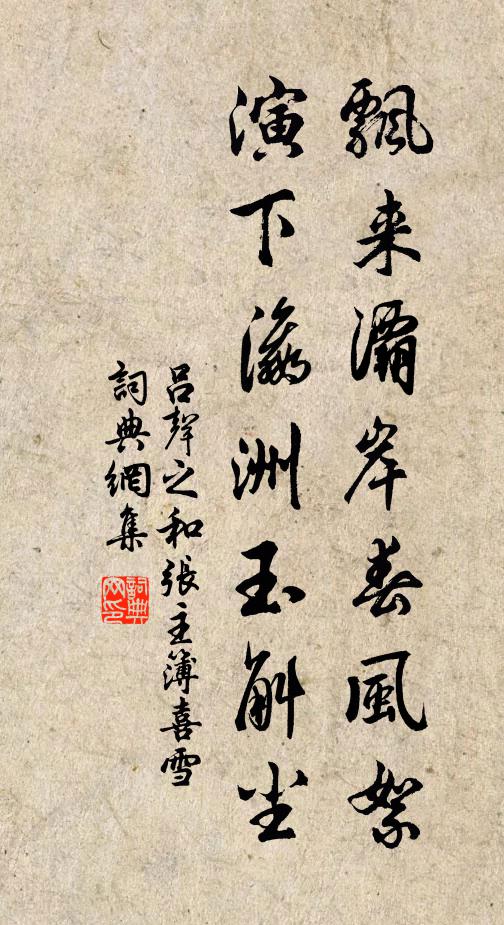 飄来灞岸春風絮
演下瀛洲玉斛尘
吕聲之和張主簿喜雪
詞典網集
詞典
网印